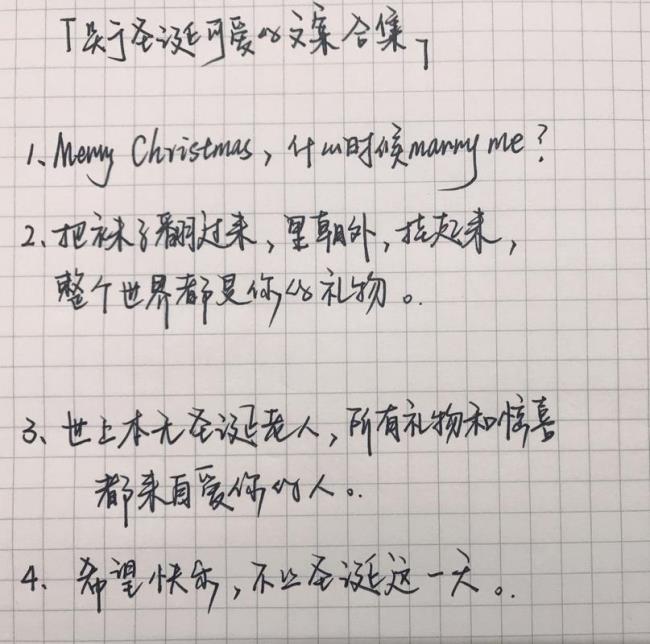 「关于圣诞可爱的文案合集」
1、Merry Christmas，什么时候marry me？
2、把袜子翻过来，里朝外，挂起来，
整个世界都是你的礼物。
3、世上本无圣诞老人，所有礼物和惊喜
都来自爱你的人。
4、希望快乐，不止圣诞这一天。